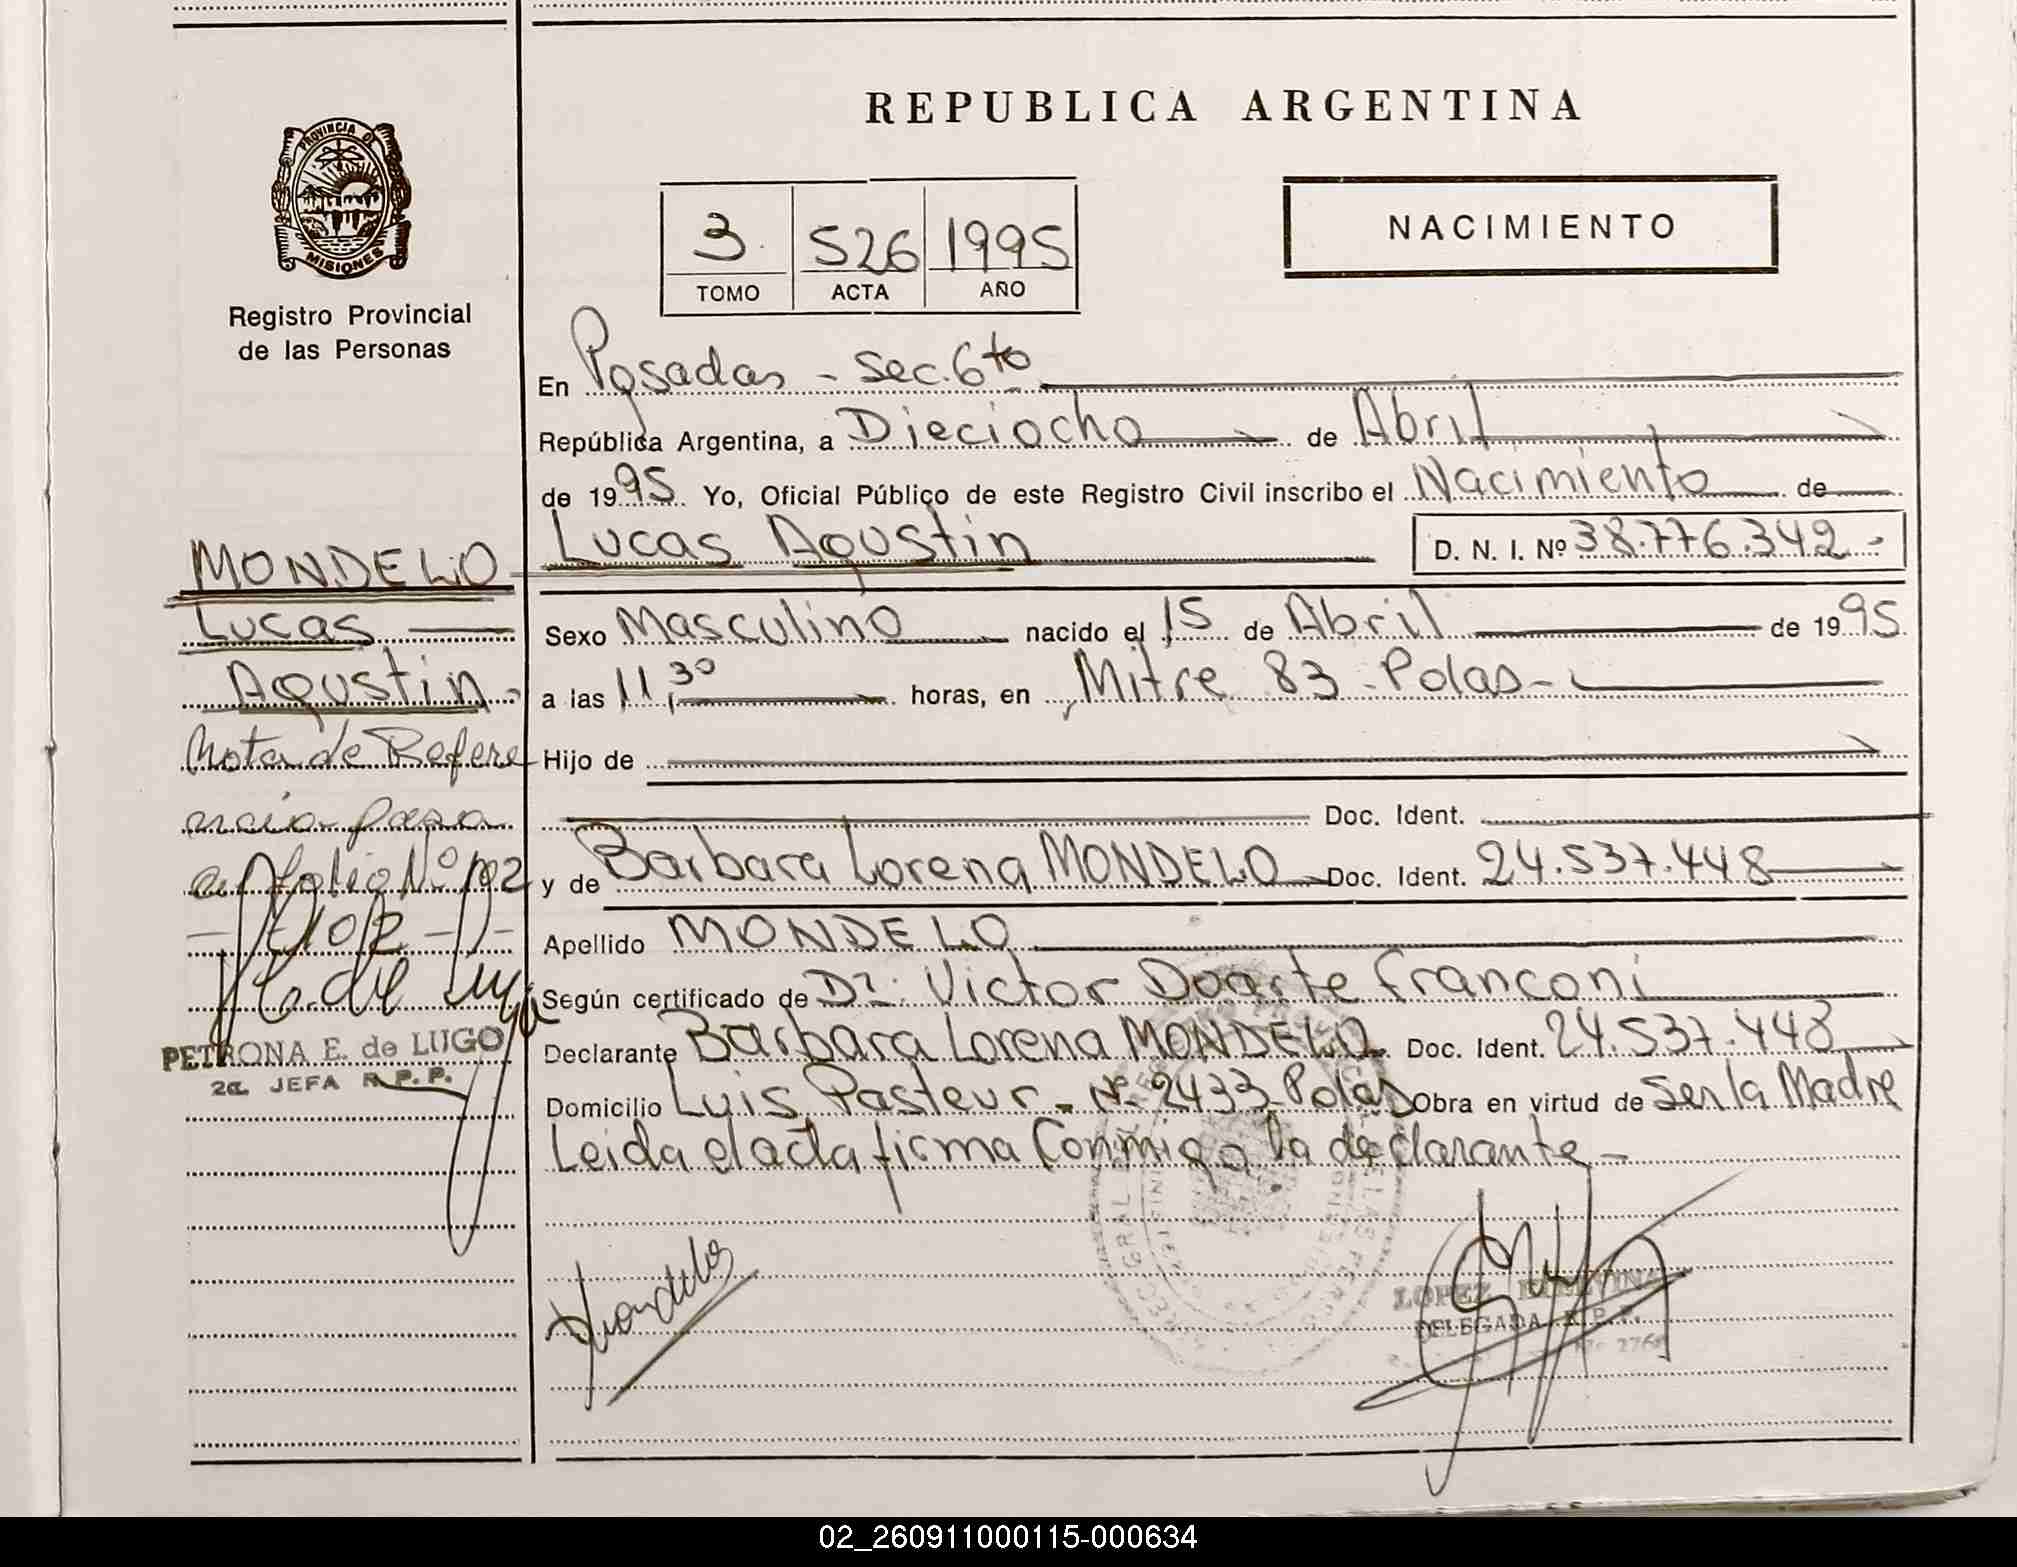 REPUBLICA ARGENTINA
PROVINCIA DE
MISIONES
Registro Provincial
de las Personas
3 526 1995
TOMO ACTA AÑO
NACIMIENTO
En Posadas - Sec. 6to
República Argentina, a Dieciocho de Abril
de 1995 Yo, Oficial Público de este Registro Civil inscribo el Nacimiento de
Lucas Agustin D. N. I. Nº 38.776.342.-
Sexo Masculino nacido el 15 de Abril de 1995
a las 11,30 horas, en Mitre 83 - Pdas -
Hijo de
Doc. Ident.
y de Barbara Lorena MONDELO Doc. Ident. 24.537.448
Apellido MONDELO
Según certificado de Dr. Victor Duarte Franconi
Declarante Barbara Lorena MONDELO Doc. Ident. 24.537.448
Domicilio Luis Pasteur - Nº 2433 - Pdas Obra en virtud de Ser la Madre
Leida el acta firma Conmigo la declarante -
MONDELO
Lucas
Agustin -
Nota de Refere
ncia pasa
a folio Nº 102
- 102 -
PETRONA E. de LUGO
2a. JEFA R.P.P.
Mondelo
LOPEZ
DELEGADA R.P.P.
02_260911000115-000634